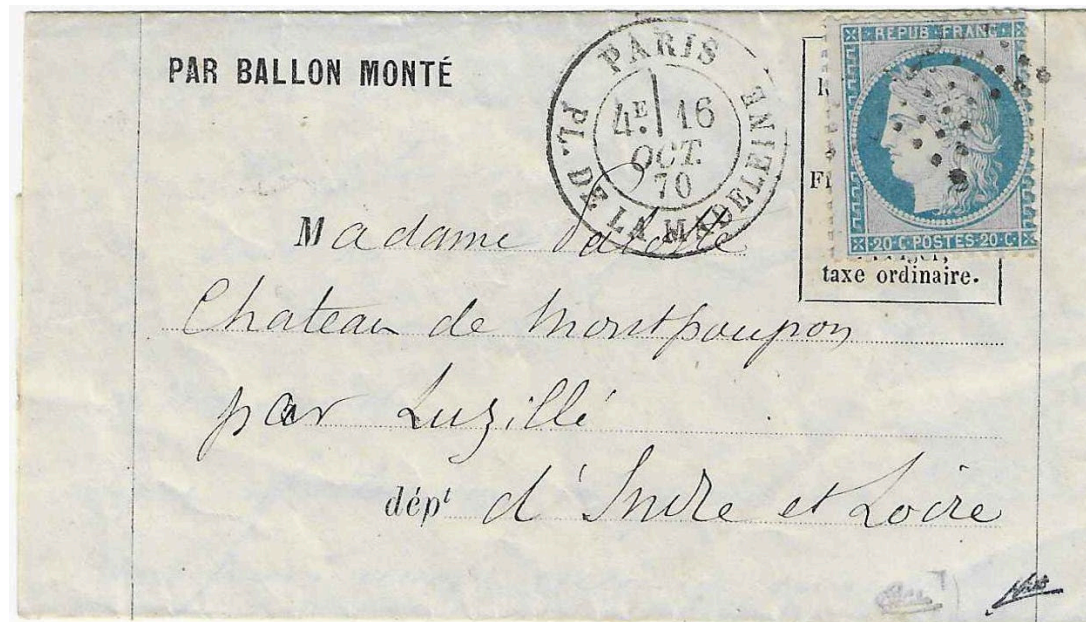 PAR BALLON MONTÉ
PARIS
4E 16
OCT.
70
PL. DE LA MADELEINE
REPUB. FRANC.
20·C·POSTES·20·C·
taxe ordinaire.
Madame
Chateau de Montpoupon
par Luzillé
dépt d'Indre et Loire